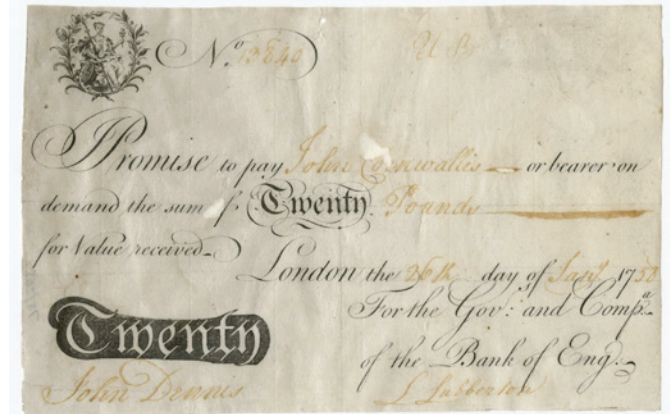 No. 13840
Promise to pay John Cornwallis or bearer on
demand the sum of Twenty Pounds
for Value received
London the 26th day of Jany 1758
For the Gov: and Compa.
of the Bank of Eng.
Twenty
John Dennis